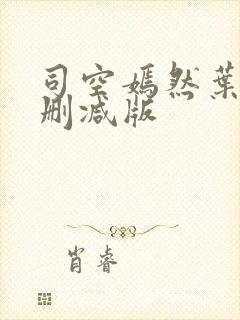 司空嫣然葉
删减版
肖睿